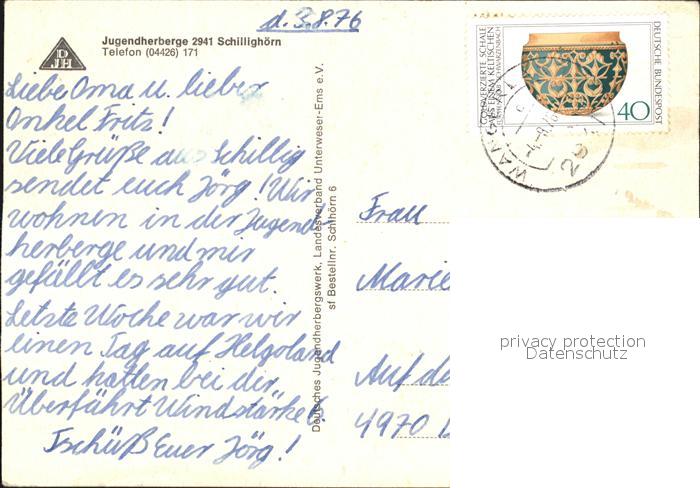 d. 3.8.76
DJH
Jugendherberge 2941 Schillighörn
Telefon (04426) 171
Liebe Oma u. lieber
Onkel Fritz!
Viele Grüße aus Schillig
sendet euch Jörg! Wir
wohnen in der Jugend
herberge und mir
gefällt es sehr gut.
Letzte Woche war wir
einen Tag auf Helgoland
und hatten bei der
Überfährt Windstärke 6.
Tschüß Euer Jörg!
Deutsches Jugendherbergswerk, Landesverband Unterweser-Ems e.V.
sf Bestellnr. Schlhörn 6
GOLDVERZIERTE SCHALE
AUS EINEM KELTISCHEN
SCHWARZENBACH
DEUTSCHE BUNDESPOST
40
WANG
Frau
Marie
Auf d
4970
privacy protection
Datenschutz